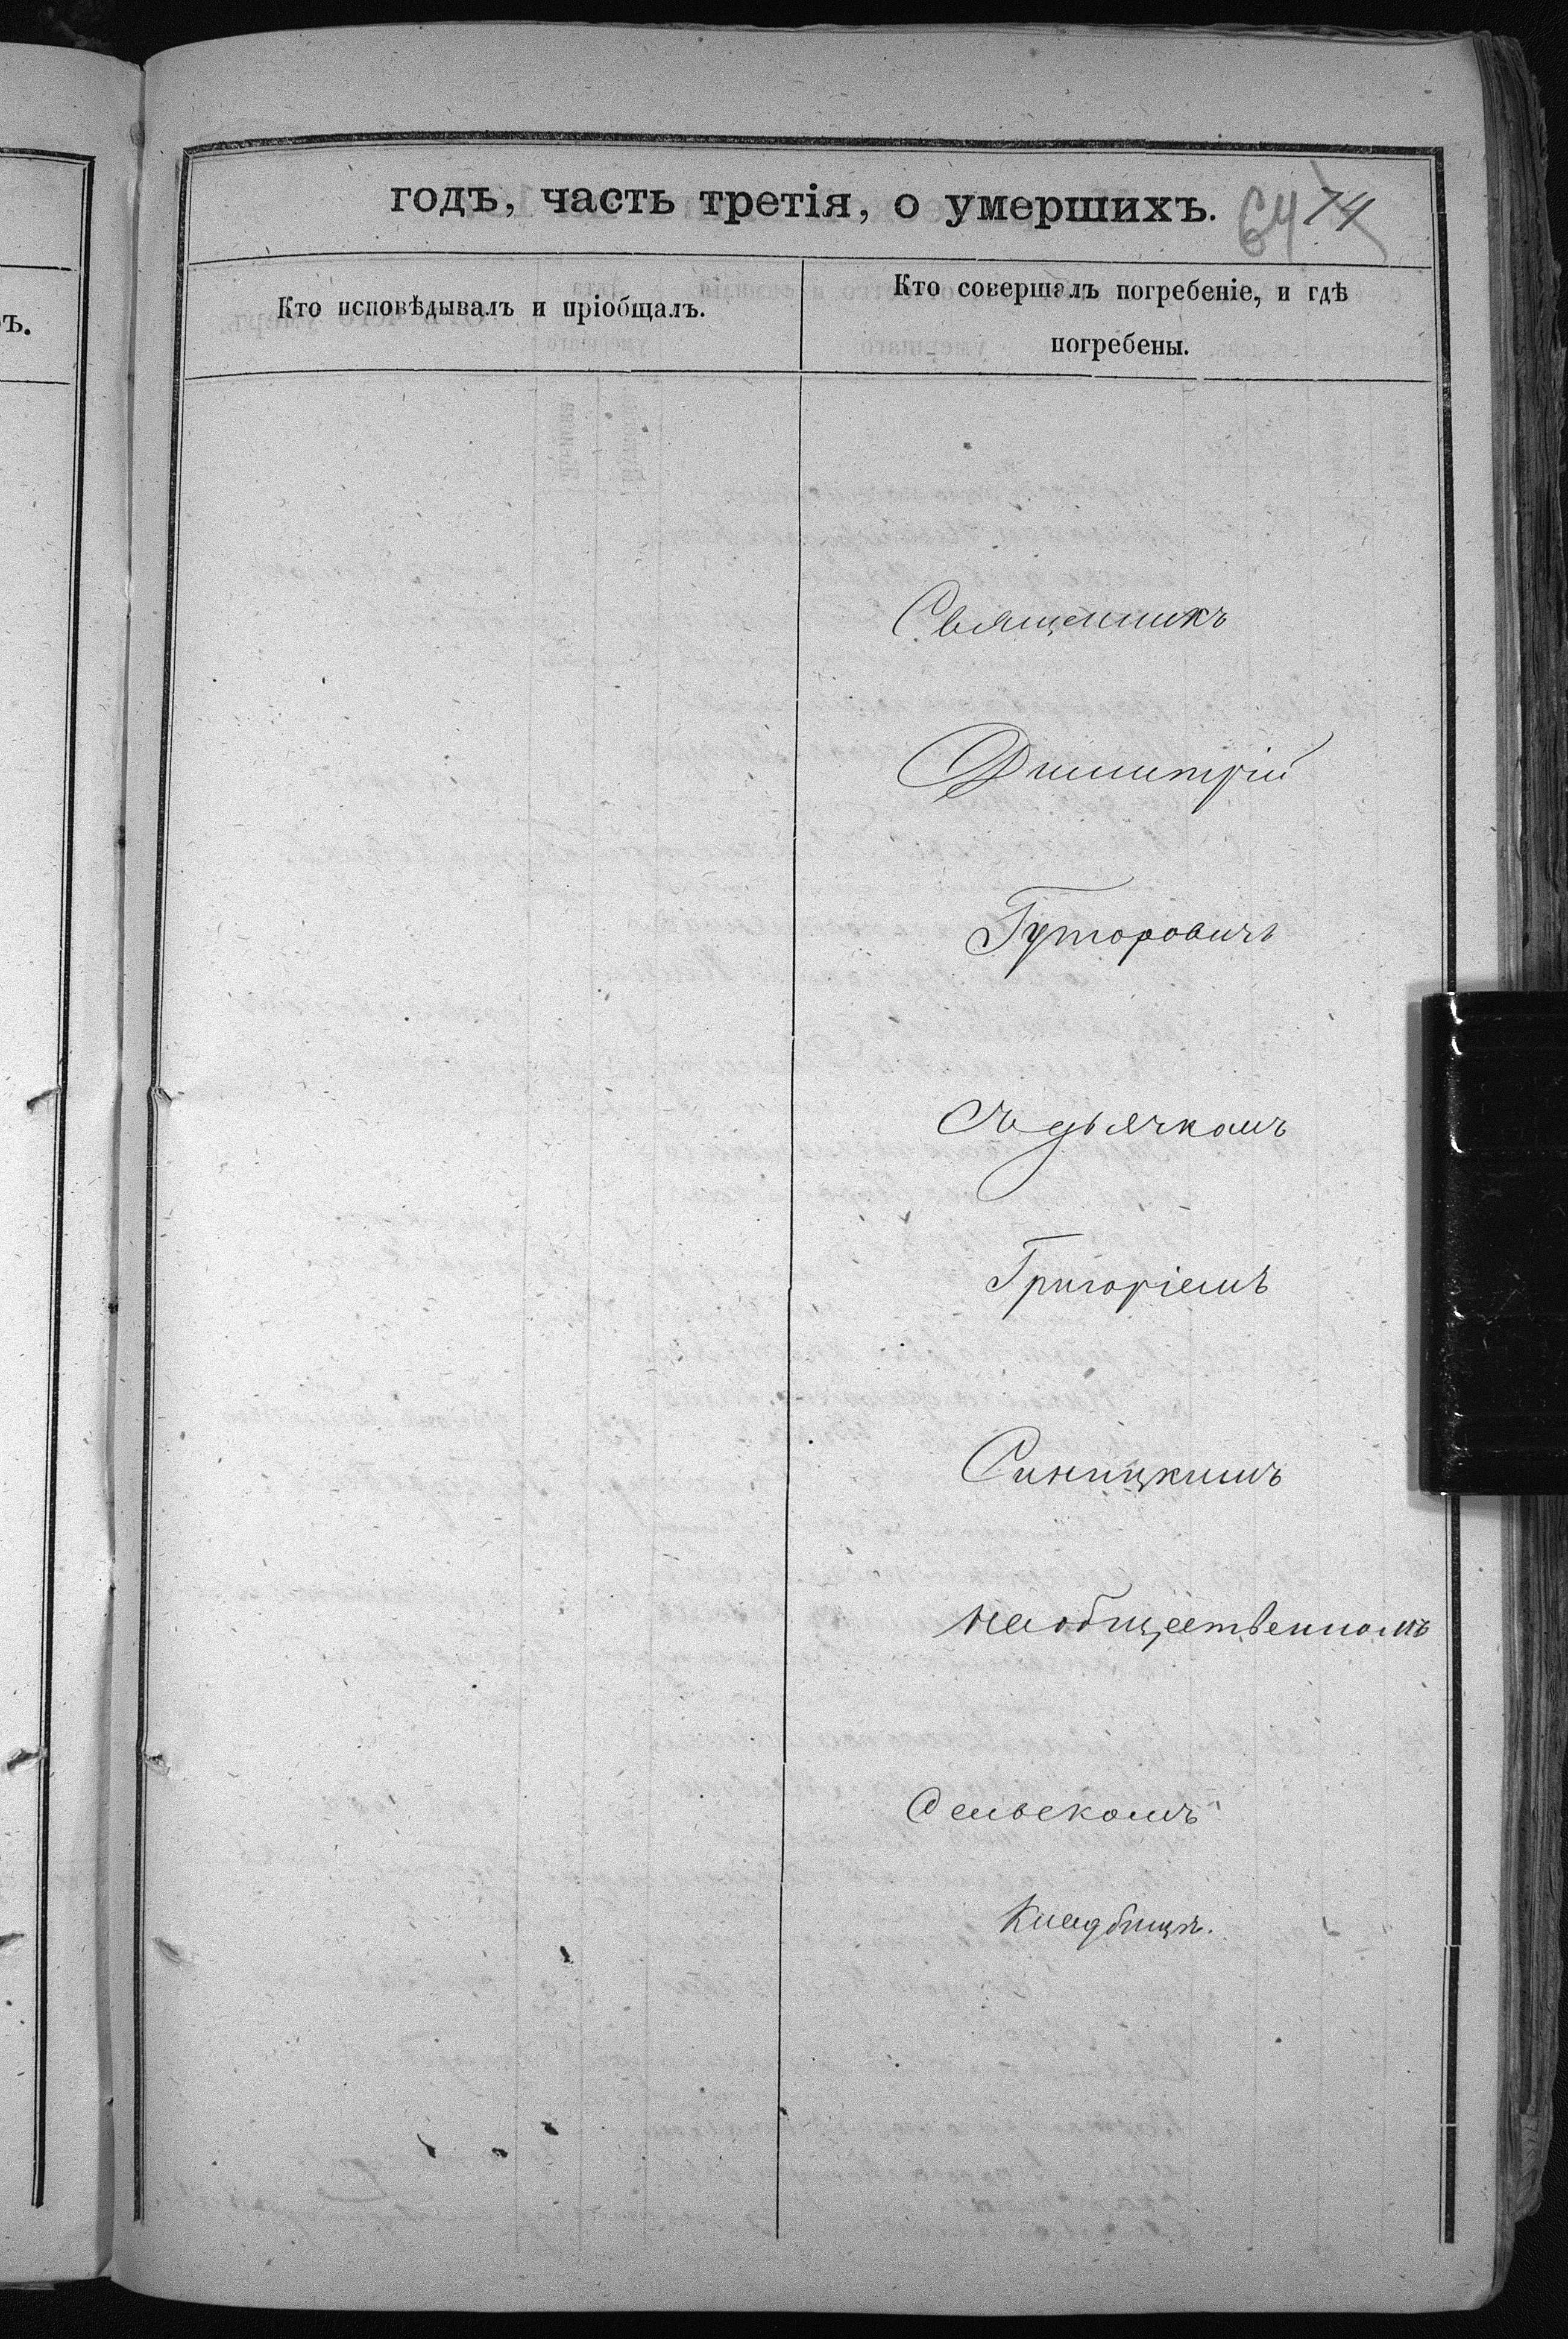 годъ, часть третія, о умершихъ. 64 74
Кто исповѣдывалъ и пріобщалъ.
Кто совершалъ погребеніе, и гдѣ
погребены.
ъ.
Священникъ
Димитрій
Гуторовичъ
Съ дьячкомъ
Григоріемъ
Синицкимъ
на общественномъ
Сельскомъ
Кладбищѣ.